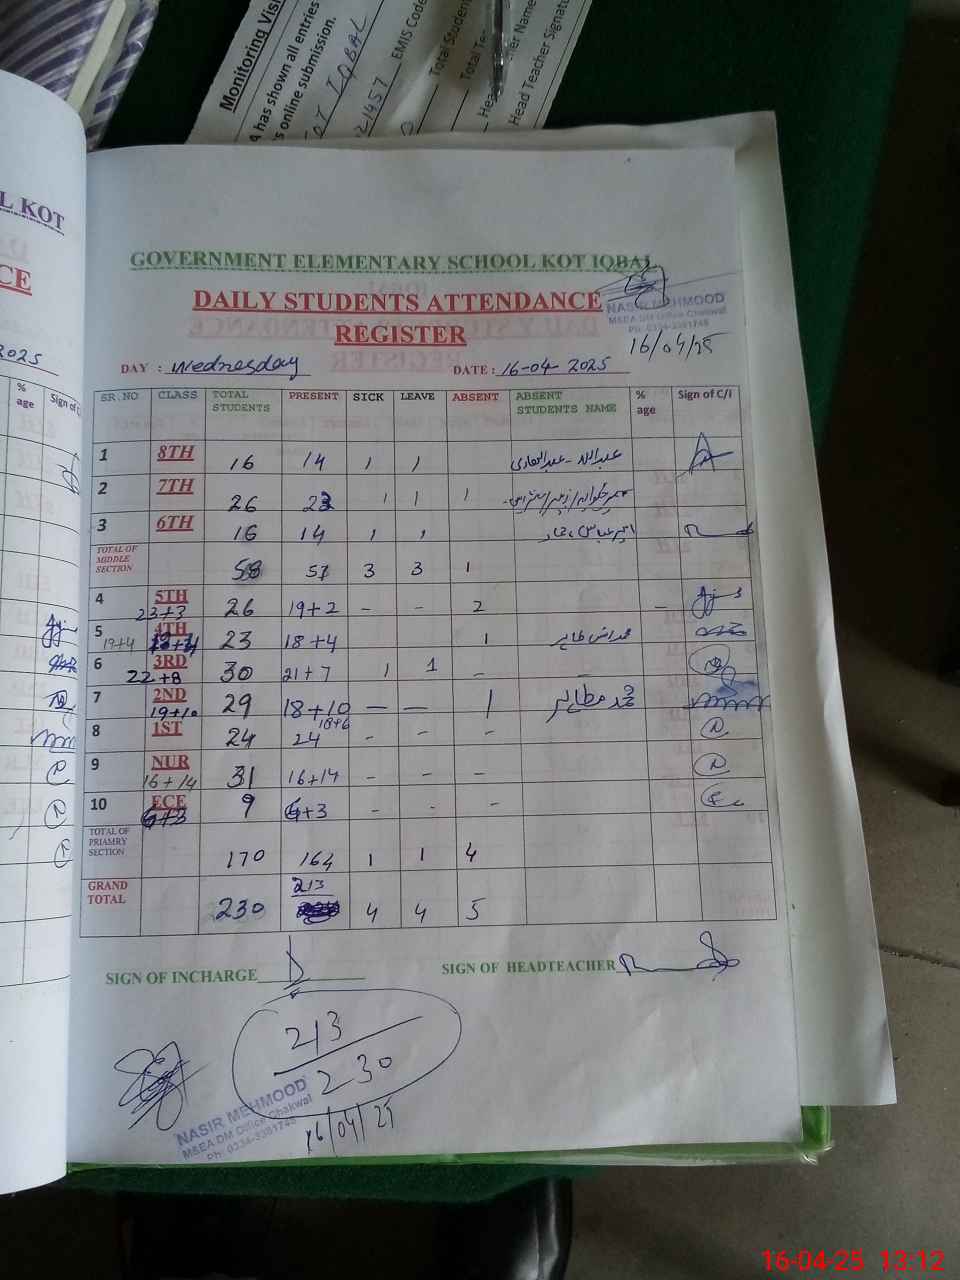 Monitoring Visi
A has shown all entries
s online submission.
OT IQBAL
21457 EMIS Code
Total Student
Total Te
Head
her Name
Head Teacher Signatu
L KOT
CE
2025
% age Sign of C/
GOVERNMENT ELEMENTARY SCHOOL KOT IQBAL
DAILY STUDENTS ATTENDANCE
REGISTER
NASIR MEHMOOD
M&EA DM Office Chakwal
Ph: 0334-3381748
16/04/25
DAY : Wednesday DATE : 16-04-2025
SR.NO CLASS TOTAL STUDENTS PRESENT SICK LEAVE ABSENT ABSENT STUDENTS NAME % age Sign of C/i
1 8TH 16 14 1 1
2 7TH 26 23 1 1 1
3 6TH 16 14 1 1
TOTAL OF MIDDLE SECTION 58 51 3 3 1
4 5TH 23+3 26 19+2 - - 2 -
5 4TH 19+4 23 18+4 1
6 3RD 22+8 30 21+7 1 1 - - -
7 2ND 19+10 29 18+10 — — 1
8 1ST 24 18+6 24 - - -
9 NUR 16+14 31 16+14 - - -
10 ECE 6+3 9 6+3 - - -
TOTAL OF PRIAMRY SECTION 170 164 1 1 4
GRAND TOTAL 230 213 4 4 5
SIGN OF INCHARGE SIGN OF HEADTEACHER
213
230
NASIR MEHMOOD
M&EA DM Office Chakwal
Ph: 0334-3381748
16/04/25
16-04-25 13:12